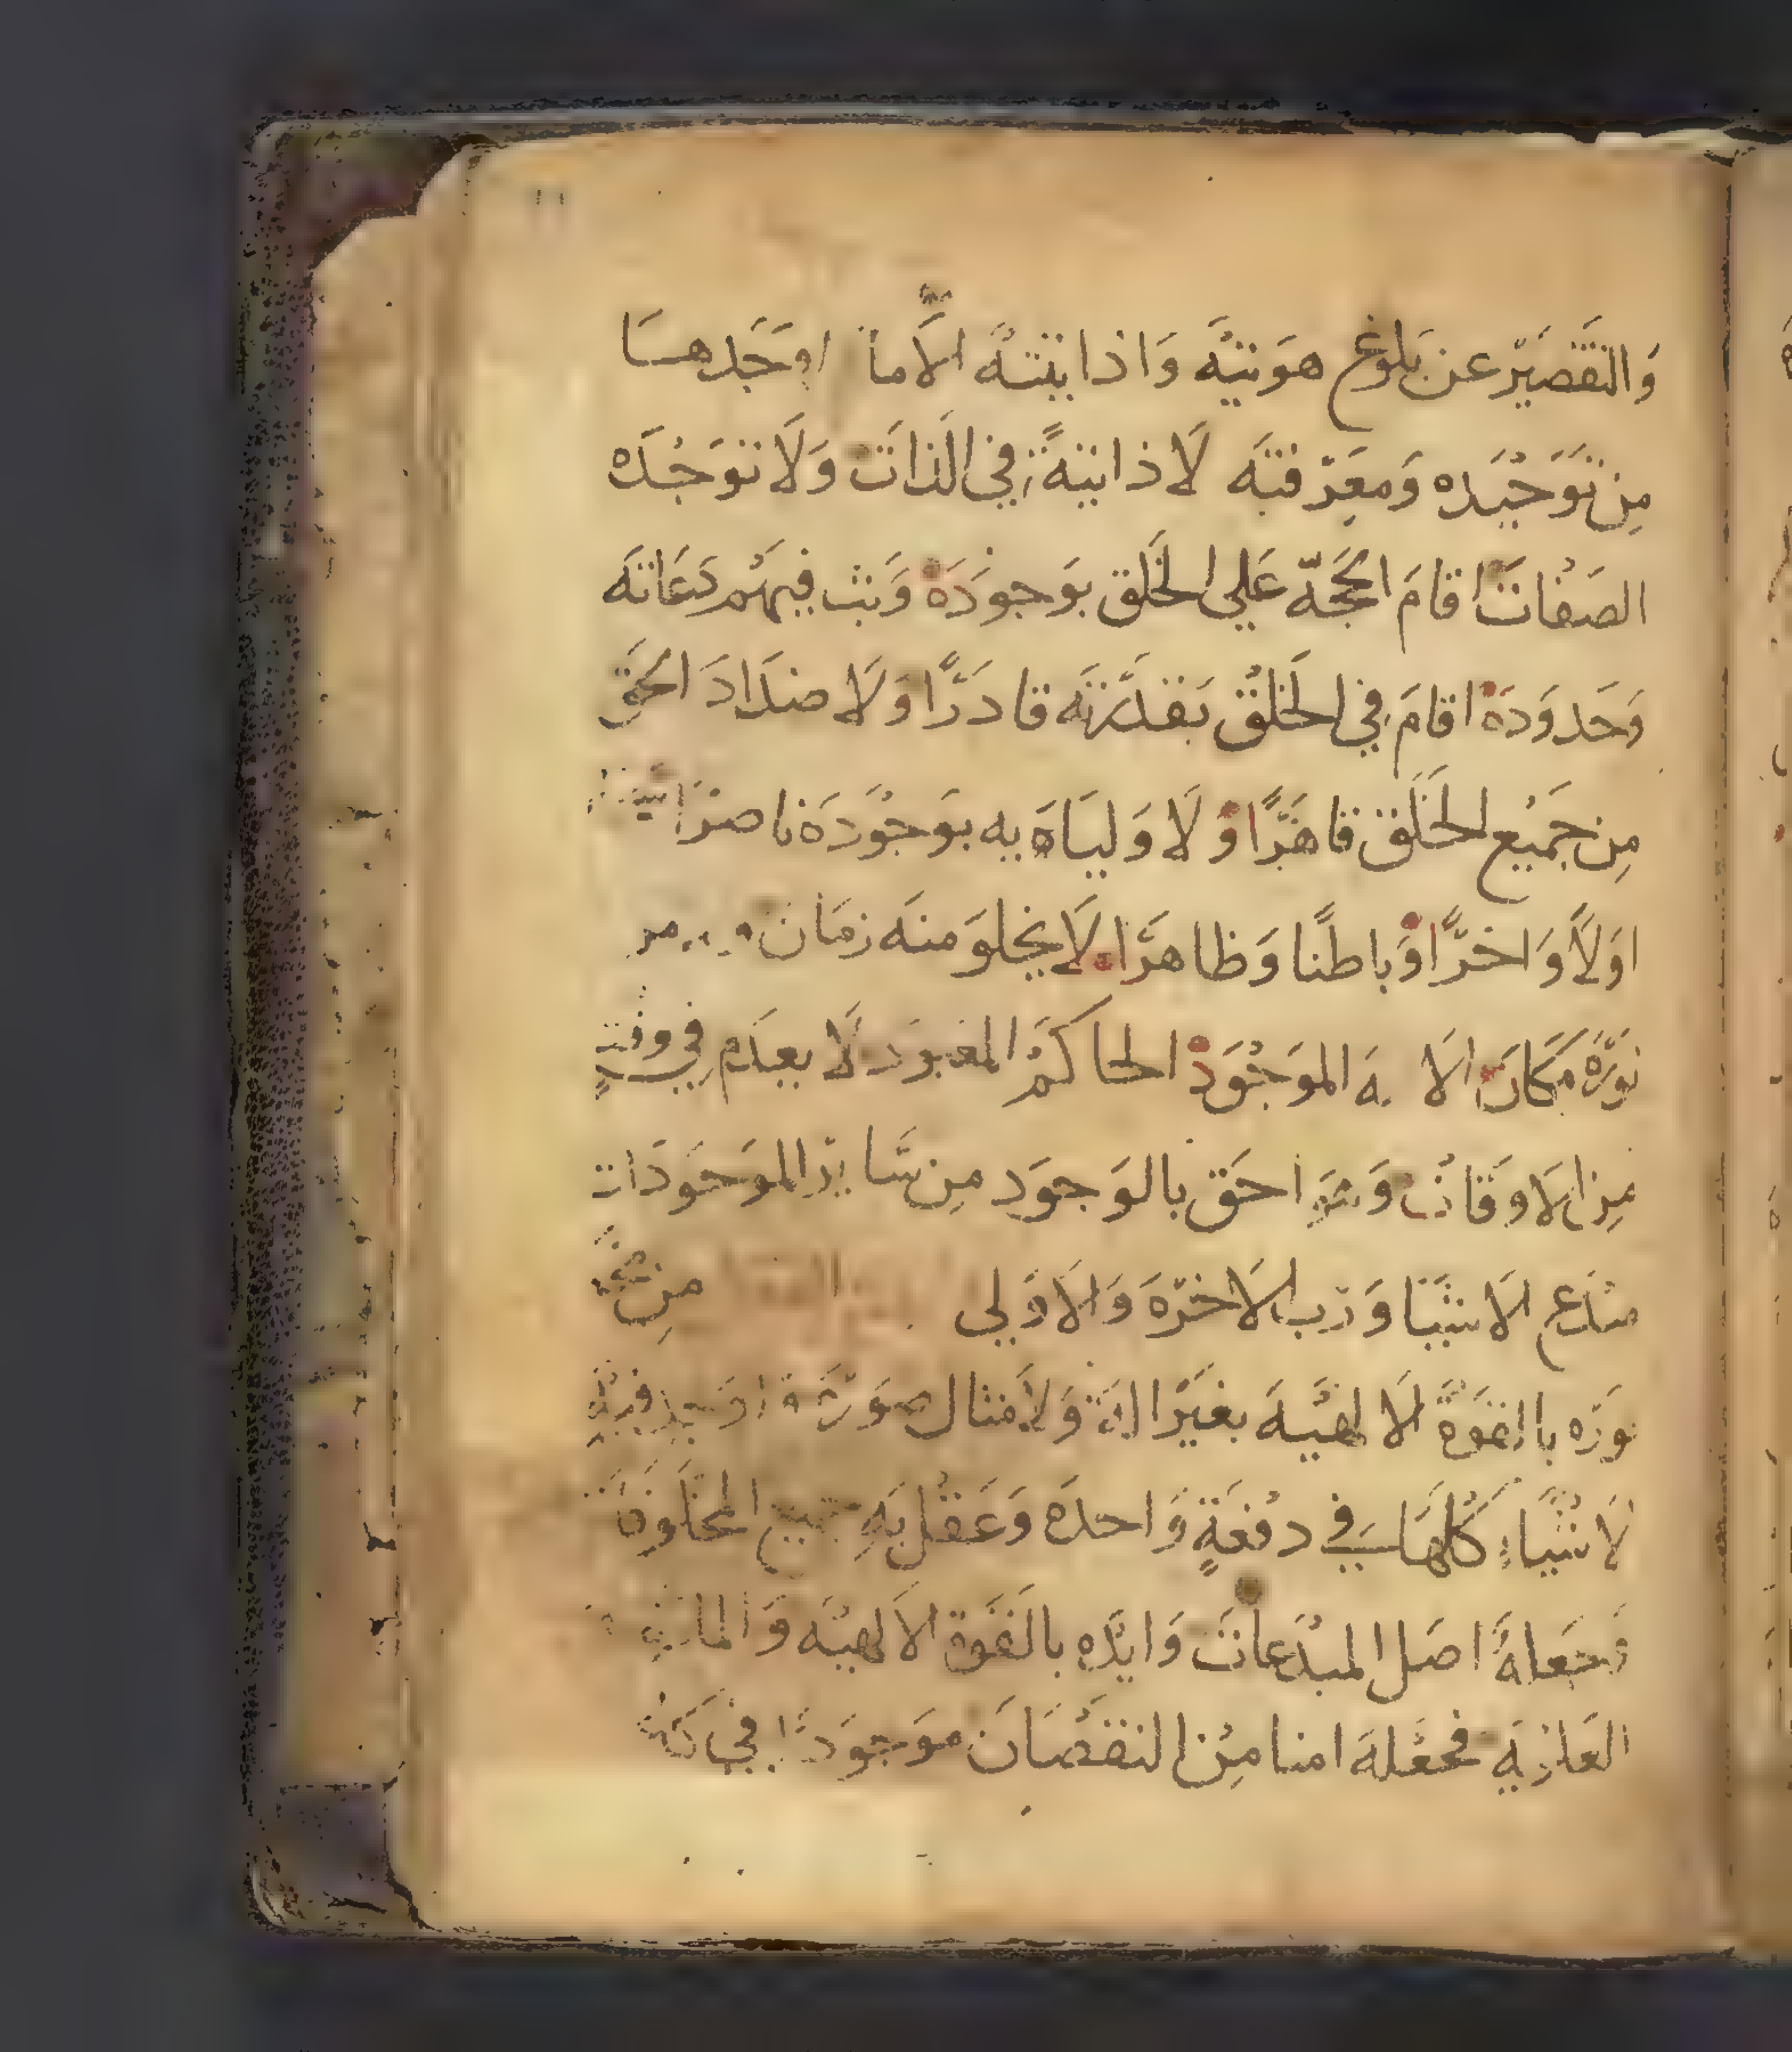 ١١
وَالتقصَيّر عن بَلوغ هوَيتَّه وَاذابيتهً الَّاما اوجَدهسَا
مِن تَوَحَيَده وَمعَرَفتَه لَا ذابيةً في الَذاتَ وَلَا توَحُدَه
الصَفاتَ اقامَ الحجَّة عَلي الخَلق بوَجوَدَهْ وَبث فيهمُ دَعَاتَه
وَحَدوَدَهْ اقامَ في الخَلقُ بَقدَرَتَه قادرًَا وَلَا ضدَادَ الحَق
مِن جَميُع الخَلَق قاهَرًا وَ لَا وَليَاهَ به بوَجُوَدَهَ ناصرَا
اوَلًا وَاخرًّا وَباطنًا وَظاهرًَا لَا يخلوَ منهَ زمَان
نورَّه مَكَان الا المَوَجُوَدْ الحاكمَْ المعبوَد لَا يعدَم في وقتٍ
مِن الَاوقَات وَهوَ احَق بالوَجوَد مِن سَايرَ الموَجوَدَات
مبَدع الَاشَيَا وَرَب الَاخرَةَ وَالَاوَلي من
نورَه باالقوَةَ الَالهيَّهَ بغيَرَ الة وَلَامثال صوَرَة
لَاشيَاءِ كُلهَا في دفُعَةٍ وَاحدَه وَعَقلُ بَهِ جميع المخلَوقات
وَجَعلهَ اصَل المبدَعاتَ وَايدَه بالَقوَة الَالهيَه وَالمادة
فجعَلهَ امنا مِن النقصَانَ موَجوَدًا في